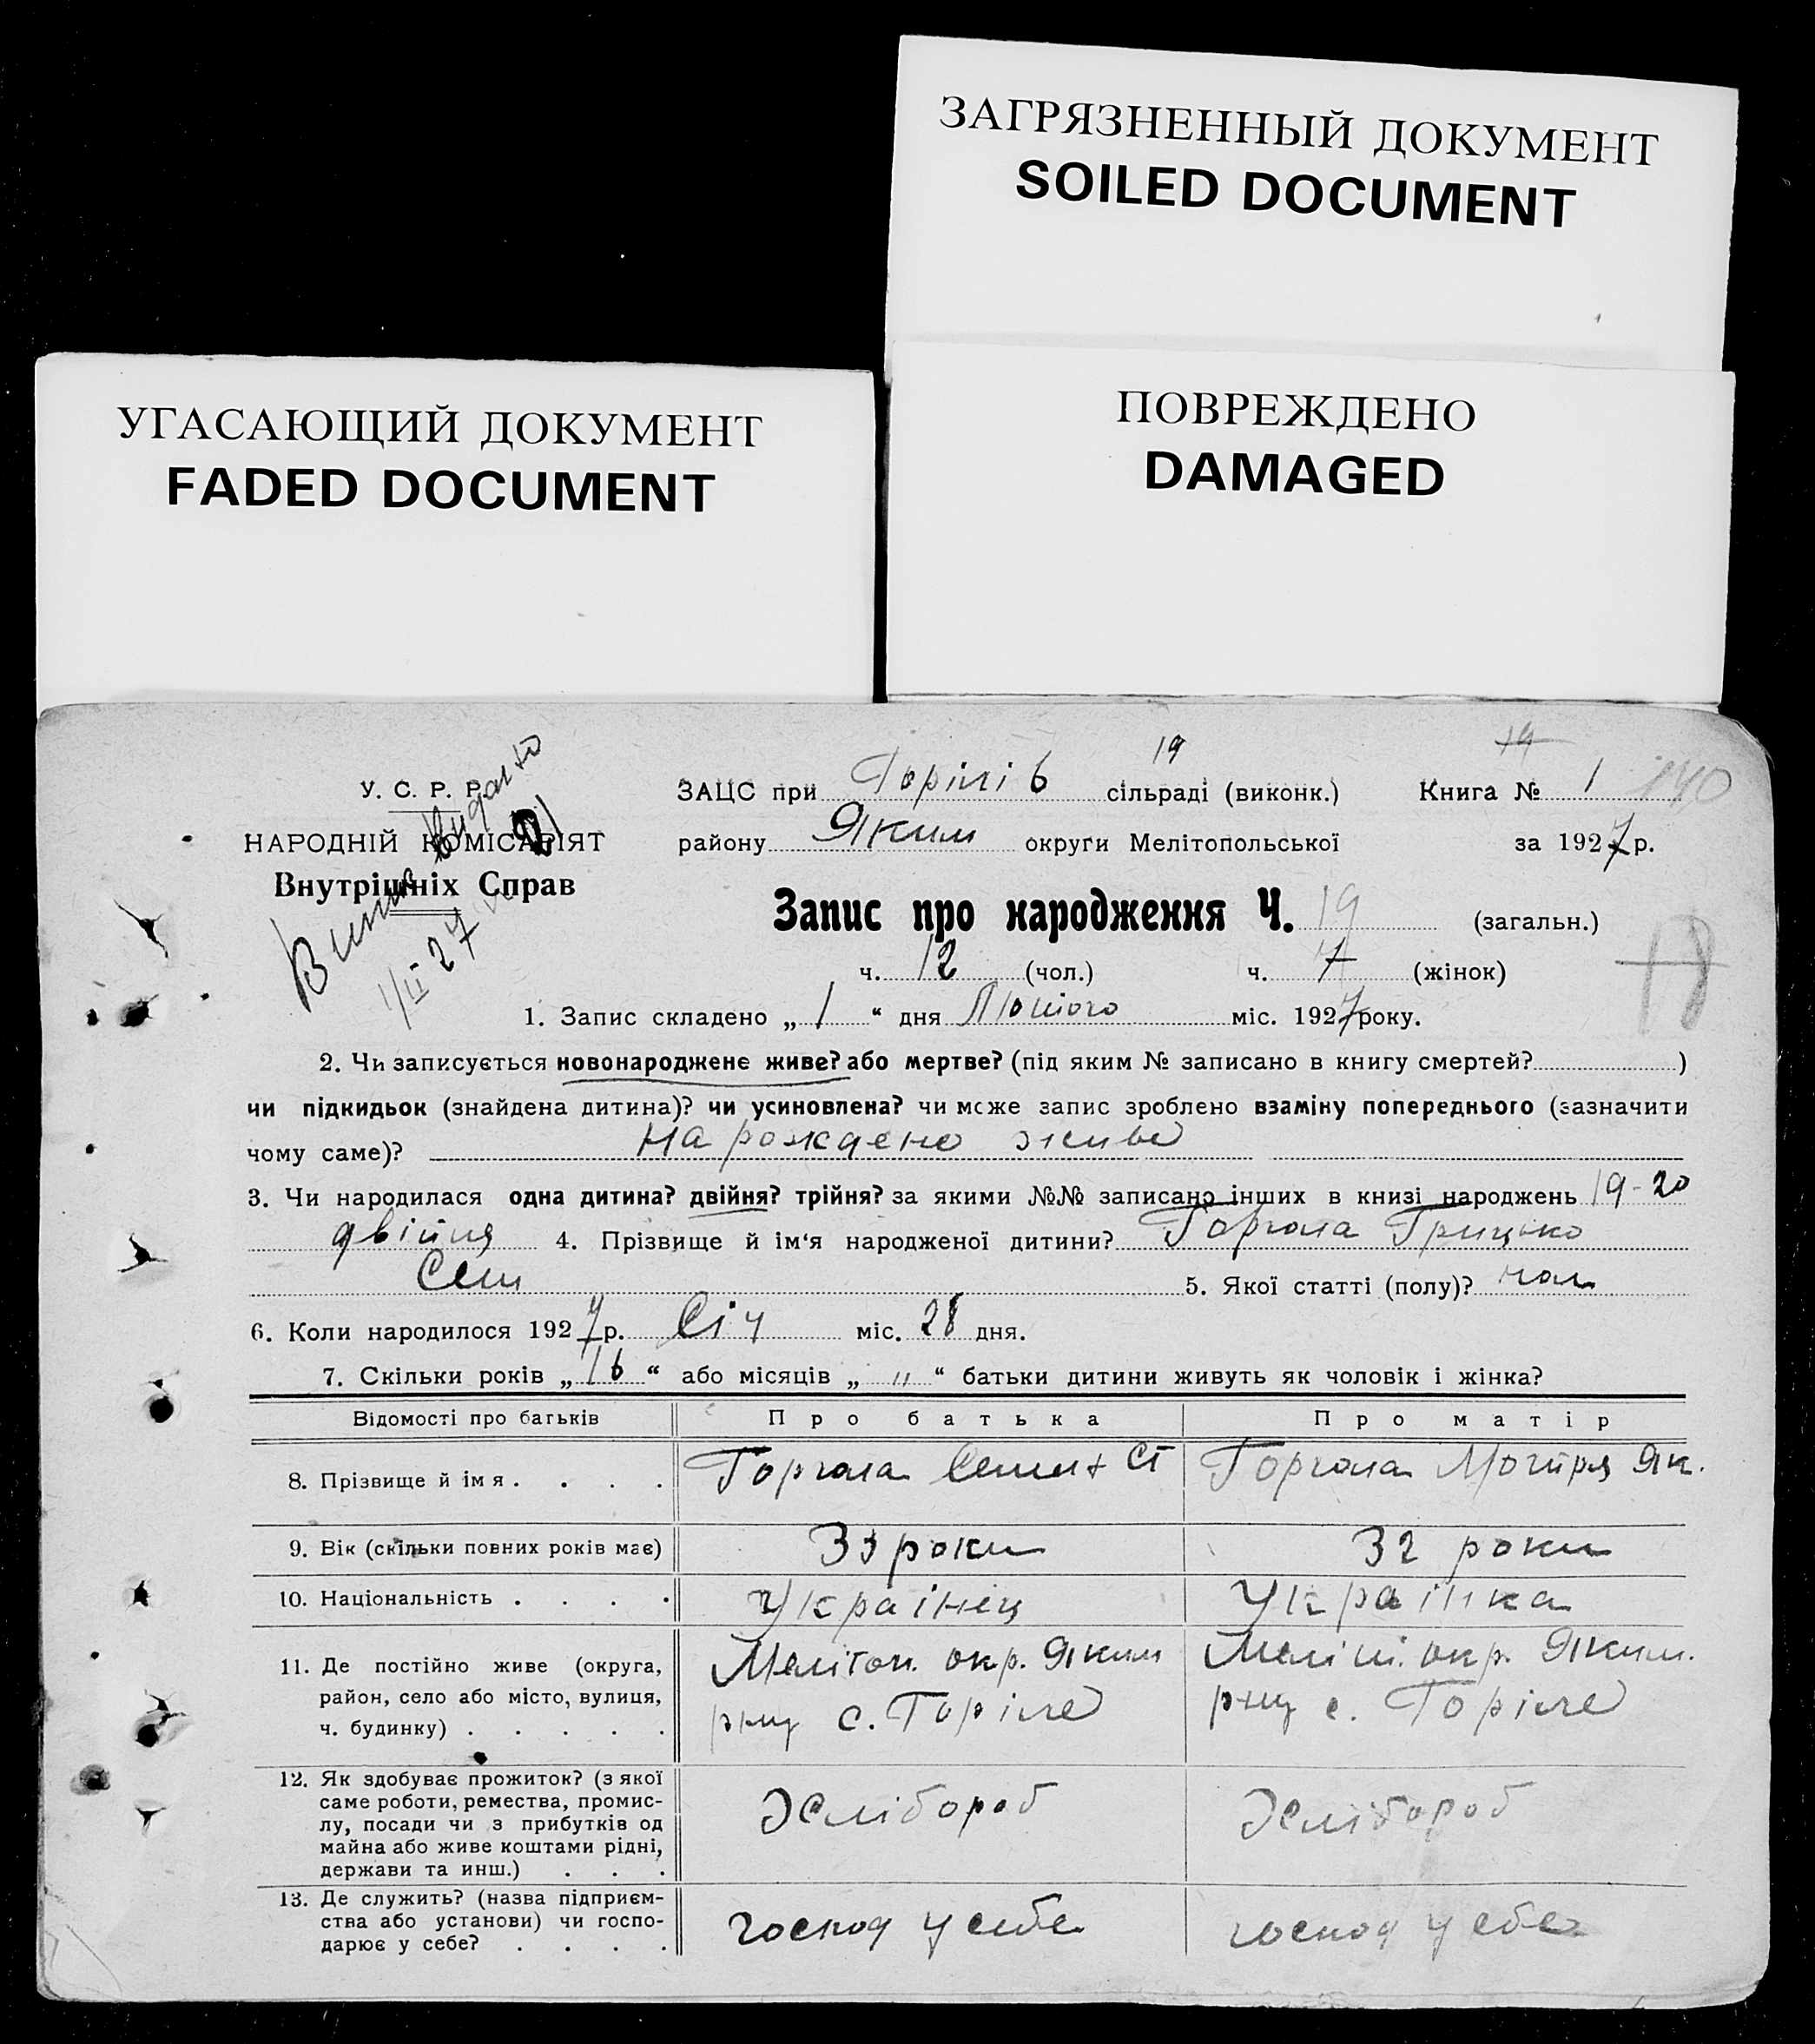 ЗАГРЯЗНЕННЫЙ ДОКУМЕНТ
SOILED DOCUMENT
УГАСАЮЩИЙ ДОКУМЕНТ
FADED DOCUMENT
ПОВРЕЖДЕНО
DAMAGED
19 19
У. С. Р. Р.
НАРОДНІЙ КОМІСАРІЯТ
Внутрішніх Справ
Витяг видано
1/II 27
ЗАЦС при Горілів сільраді (виконк.) Книга № 1 140
району Яким округи Мелітопольської за 1927 р.
Запис про народження Ч. 19 (загальн.)
18
ч. 12 (чол.) ч. 7 (жінок)
1. Запис складено „ 1 “ дня Лютого міс. 1927 року.
2. Чи записується новонароджене живе? або мертве? (під яким № записано в книгу смертей? )
чи підкидьок (знайдена дитина)? чи усиновлена? чи може запис зроблено взаміну попереднього (зазначити
чому саме)? Нарождено живе
3. Чи народилася одна дитина? двійня? трійня? за якими №№ записано інших в книзі народжень 19-20
двійня 4. Прізвище й ім‘я народженої дитини? Горгола Грицько
Сем 5. Якої статті (полу)? чол
6. Коли народилося 1927 р. Січ міс. 28 дня.
7. Скільки років „ 16 “ або місяців „ " “ батьки дитини живуть як чоловік і жінка?
Відомості про батьків Про батька Про матір
8. Прізвище й імя . . . . Горгола Семен Ст Горгола Мотря Як.
9. Вік (скільки повних років має) 33 роки 32 роки
10. Національність . . . . Українец Українка
11. Де постійно живе (округа,
район, село або місто, вулиця,
ч. будинку) . . . . .
Мелітоп. окр. Яким
рну с. Горіле
Меліт. окр. Яким.
рну с. Горіле
12. Як здобуває прожиток? (з якої
саме роботи, ремества, промис-
лу, посади чи з прибутків од
майна або живе коштами рідні,
держави та инш.) . . .
Хлібороб Хлібороб
13. Де служить? (назва підприєм-
ства або установи) чи госпо-
дарює у себе? . . . .
господ у себе господ у себе